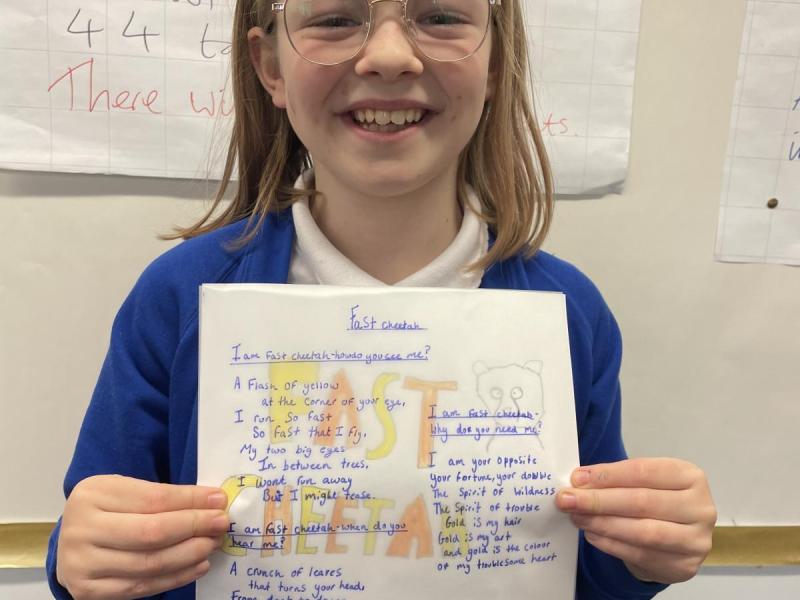 44 to
There wi
ts.
Fast cheetah
I am Fast cheetah-how do you see me?
A Flash of yellow
at the corner of your eye,
I run So fast
So fast that I fly,
My two big eyes
In between trees,
I wont run away
But I might tease.
I am fast cheetah-when do you
hear me?
A crunch of leaves
that turns your head,
I am fast cheetah-
Why do you need me?
I am your opposite
your fortune, your double
The Spirit of wildness
The Spirit of trouble
Gold is my hair
Gold is my art
and gold is the colour
of my troublesome heart
FAST
CHEETA